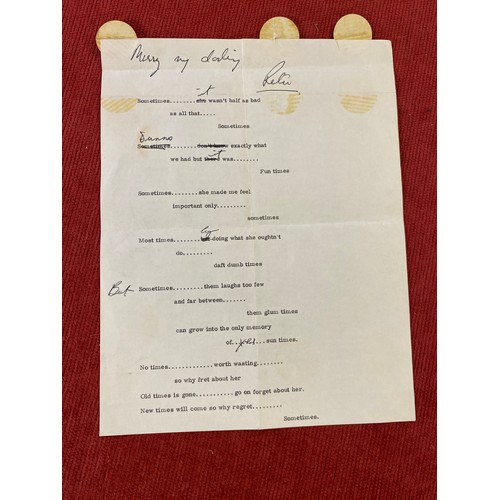 Merry my darling
Sometimes........ it wasn't half as bad
as all that.....
Sometimes
Dunno
exactly what
we had but it was........
Fun times
Sometimes........she made me feel
important only.........
sometimes
Most times........ doing what she oughtn't
do.........
daft dumb times
But Sometimes........them laughs too few
and far between.......
them glum times
can grow into the only memory
of.. sun times.
No times...........worth wasting........
so why fret about her
Old times is gone...........go on forget about her.
New times will come so why regret.........
Sometimes.